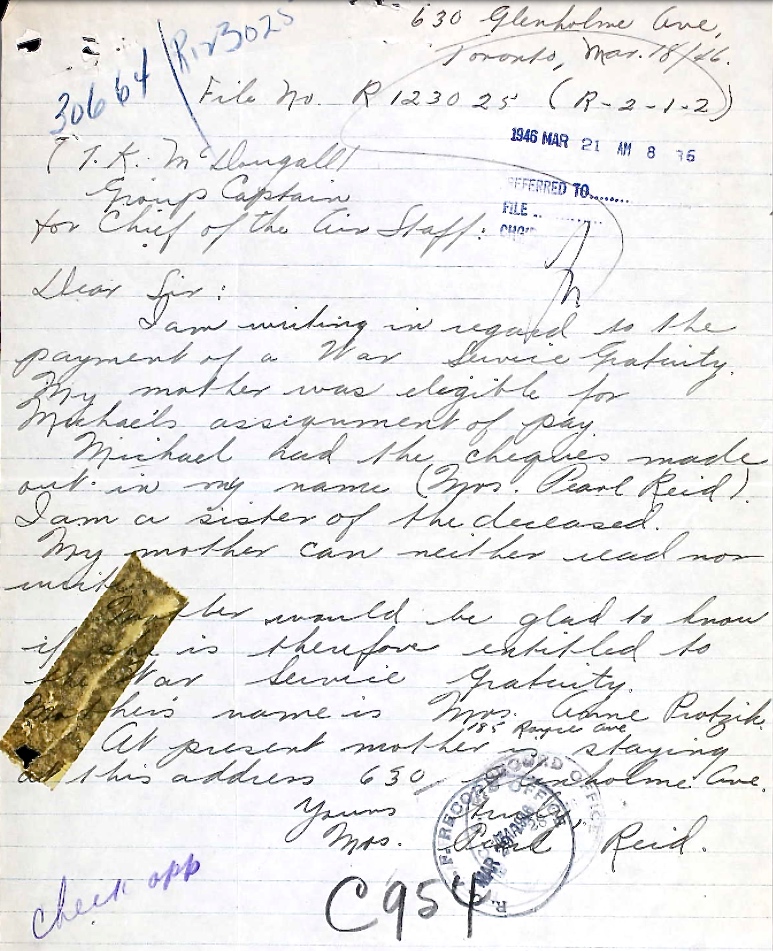 630 Glenholme Ave,
Toronto, Mar. 18/46.
30664 / R123025
File No. R 123025 (R-2-1-2)
1946 MAR 21 AM 8 36
(T. K. McDougall)
Group Captain
for Chief of the Air Staff:
REFERRED TO........
FILE ..
Dear Sir:
I am writing in regard to the
payment of a War Service Gratuity.
My mother was eligible for
Michael's assignment of pay
Michael had the cheques made
out in my name (Mrs. Pearl Reid).
I am a sister of the deceased.
My mother can neither read nor
write.
Mother would be glad to know
if she is therefore entitled to
the War Service Gratuity.
Mother's name is Mrs. Anne
185 Ave
At present mother is staying
at this address 630 Glenholme Ave.
Yours truly
Mrs. Pearl Reid.
RECORD OFFICE
MAR
check opp
C954